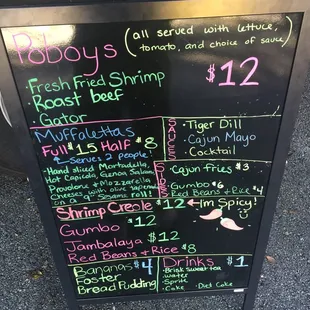 Poboys (all served with lettuce,
tomato, and choice of sauce)
$12
• Fresh Fried Shrimp
Roast beef
• Gator
Muffalettas
Full $15 Half $8
Serves 2 people!
Hand sliced Mortadella,
Hot Capicola, Genoa Salami
Provolone & Mozzarella
Cheeses with olive tapenade
on a 9" Sesame roll!
SAUCES
• Tiger Dill
• Cajun Mayo
• Cocktail
SIDES
• Cajun fries $3
• Gumbo $6
• Red Beans & Rice $4
Shrimp Creole $12 I'm Spicy!
Gumbo $12
Jambalaya $12
Red Beans & Rice $8
Bananas $4
Foster
Bread Pudding
Drinks $1
• Brisk Sweet tea
• water
• Sprite
• Coke • Diet Coke